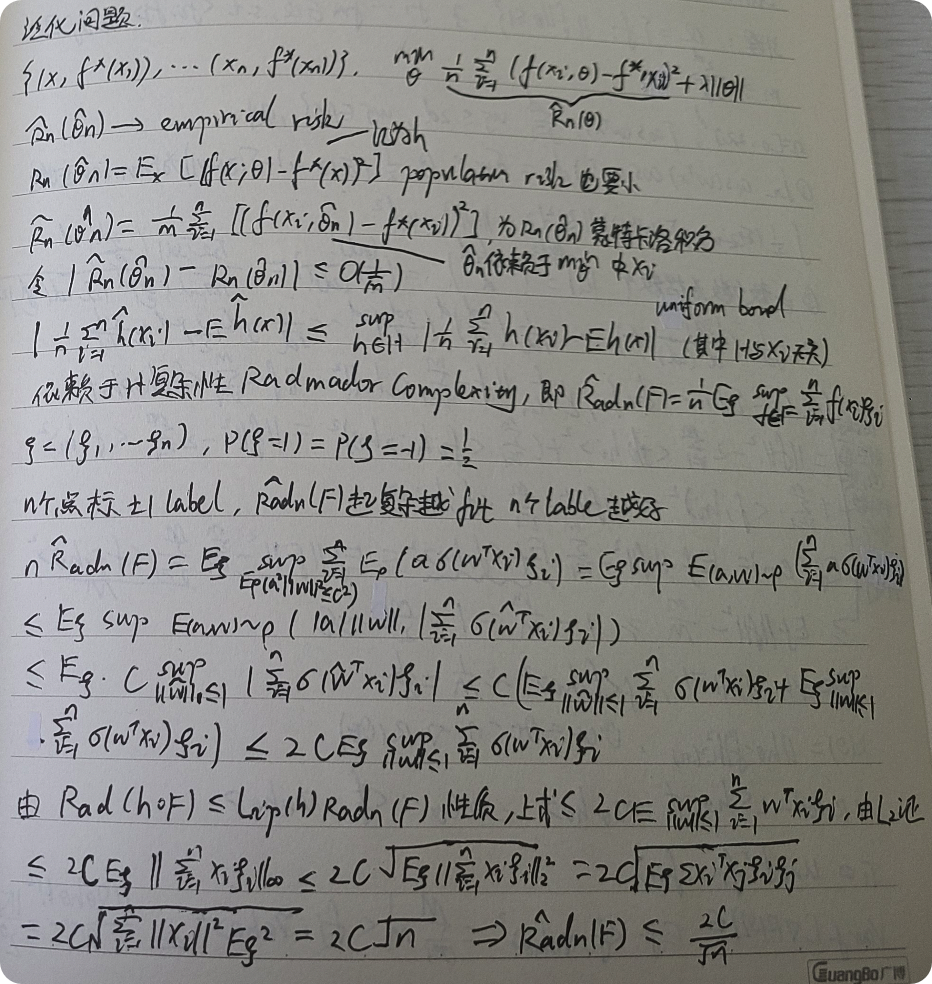 泛化问题:
{(x, f*(x₁)), … (xₙ, f*(xₙ))}. min_θ 1/n Σ_{i=1}^n (f(xᵢ,θ) - f*(xᵢ))² + λ||θ||
R̂ₙ(θ)
R̂ₙ(θ̂ₙ) → empirical risk
Rₙ(θ̂ₙ) = Eₓ [(f(x;θ) - f*(x))²] population risk 也要小
R̂ₙ(θ̂ₙ) = 1/m Σ_{i=1}^n [(f(xᵢ,θ̂ₙ) - f*(xᵢ))²], 为Rₙ(θ̂ₙ)蒙特卡洛积分
θ̂ₙ依赖于 min 中xᵢ
令 |R̂ₙ(θ̂ₙ) - Rₙ(θ̂ₙ)| ≤ O(1/m)
uniform bond
|1/n Σ_{i=1}^n ĥ(xᵢ) - Eĥ(x)| ≤ sup_{h∈H} |1/n Σ_{i=1}^n h(xᵢ) - Eh(x)| (其中H与xᵢ无关)
依赖于H复杂性 Radmador Complexity, 即 R̂adₙ(F) = 1/n E_ξ sup_{f∈F} Σ_{i=1}^n f(xᵢ)ξᵢ
ξ = (ξ₁, … ξₙ), P(ξ=1) = P(ξ=-1) = 1/2
n个点标 ±1 label, R̂adₙ(F)越复杂越 fit n个lable 越好
n R̂adₙ(F) = E_ξ sup_{Eρ(a²||w||²≤C²)} Σ_{i=1}^n Eρ(aσ(wᵀxᵢ)ξᵢ) = E_ξ sup E(a,w)~ρ (Σ_{i=1}^n aσ(wᵀxᵢ)ξᵢ)
≤ E_ξ sup E(a,w)~ρ (|a| ||w||₁ |Σ_{i=1}^n σ(ŵᵀxᵢ)ξᵢ|)
≤ E_ξ · C sup_{||ŵ||₁≤1} |Σ_{i=1}^n σ(ŵᵀxᵢ)ξᵢ| ≤ C(E_ξ sup_{||ŵ||≤1} Σ_{i=1}^n σ(wᵀxᵢ)ξᵢ + E_ξ sup_{||w||≤1}
· Σ_{i=1}^n σ(wᵀxᵢ)ξᵢ) ≤ 2CE_ξ sup_{||w||≤1} Σ_{i=1}^n σ(wᵀxᵢ)ξᵢ
由 Rad(h∘F) ≤ Lip(h)Radₙ(F) 性质, 上式≤ 2CE sup_{||w||≤1} Σ_{i=1}^n wᵀxᵢξᵢ, 由L₂证
≤ 2CE_ξ ||Σ_{i=1}^n xᵢξᵢ||∞ ≤ 2C√(E_ξ||Σ_{i=1}^n xᵢξᵢ||₂²) = 2C√(E_ξ Σxᵢᵀxⱼξᵢξⱼ)
= 2C√(Σ_{i=1}^n ||xᵢ||² Eξ²) = 2C√n ⇒ R̂adₙ(F) ≤ 2C/√n
GuangBo广博